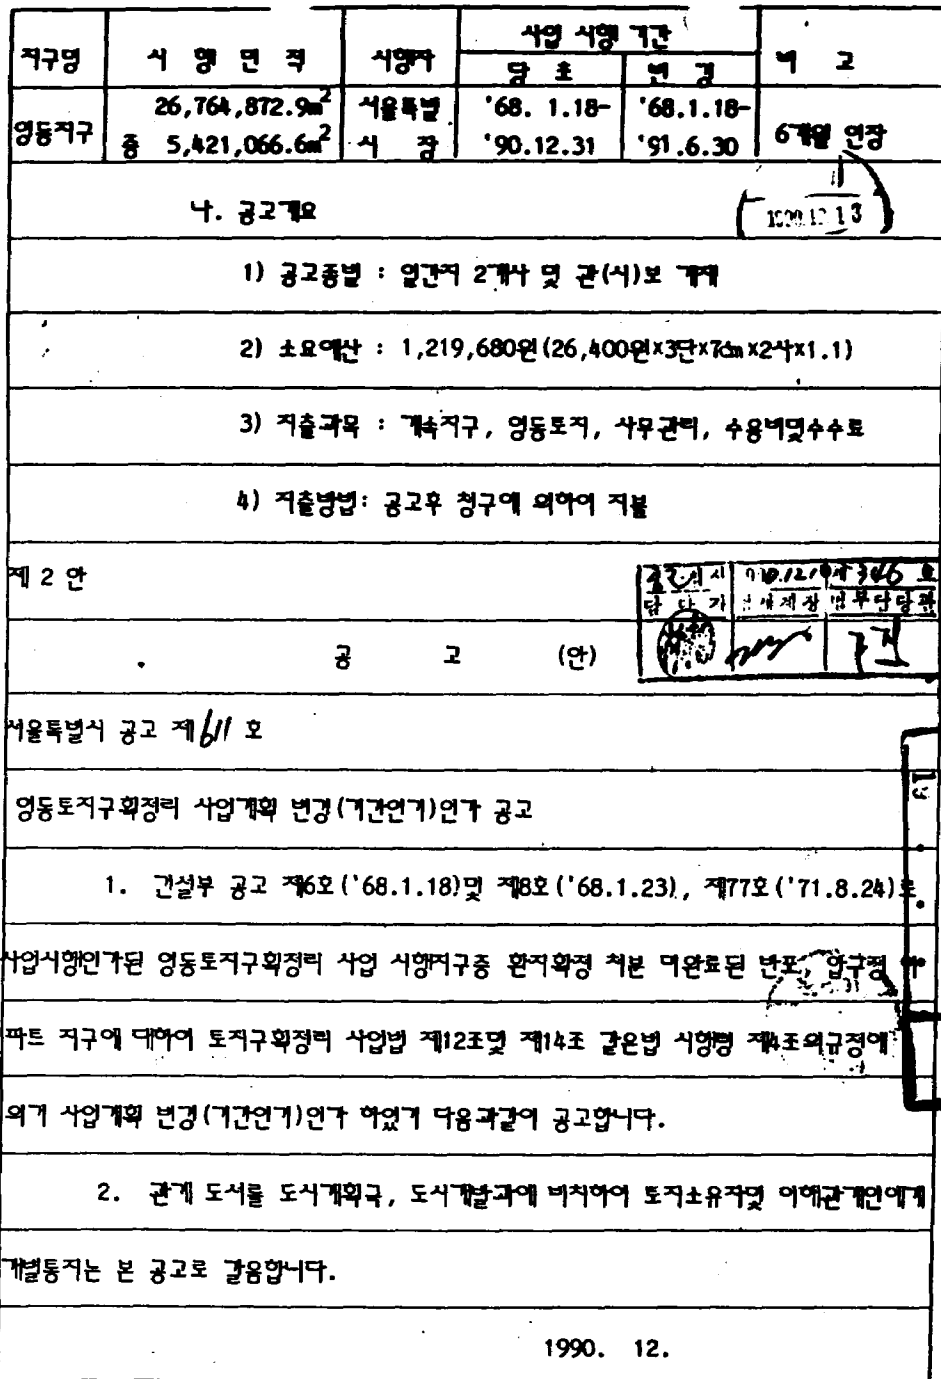 사업 시행 기간
지구명 시 행 면 적 시행자 당 초 변 경 비 고
26,764,872.9m² 서울특별 '68. 1.18- '68.1.18-
영동지구 중 5,421,066.6m² 시 장 '90.12.31 '91.6.30 6개월 연장
나. 공고개요
1990.12.13
1) 공고종별 : 일간지 2개사 및 관(시)보 게재
2) 소요예산 : 1,219,680원(26,400원x3단x7cmx2사x1.1)
3) 지출과목 : 계속지구, 영동토지, 사무관리, 수용비및수수료
4) 지출방법: 공고후 청구에 의하여 지불
제 2 안
제 346 호
법무담당관
공 고 (안)
서울특별시 공고 제611 호
영동토지구획정리 사업계획 변경(기간연기)인가 공고
1. 건설부 공고 제6호('68.1.18)및 제8호('68.1.23), 제77호('71.8.24)로
사업시행인가된 영동토지구획정리 사업 시행지구중 환지확정 처분 미완료된 반포, 압구정 아
파트 지구에 대하여 토지구획정리 사업법 제12조및 제14조 같은법 시행령 제4조의규정에
의거 사업계획 변경(기간연기)인가 하였기 다음과같이 공고합니다.
2. 관계 도서를 도시계획국, 도시개발과에 비치하여 토지소유자및 이해관계인에게
개별통지는 본 공고로 갈음합니다.
1990. 12.